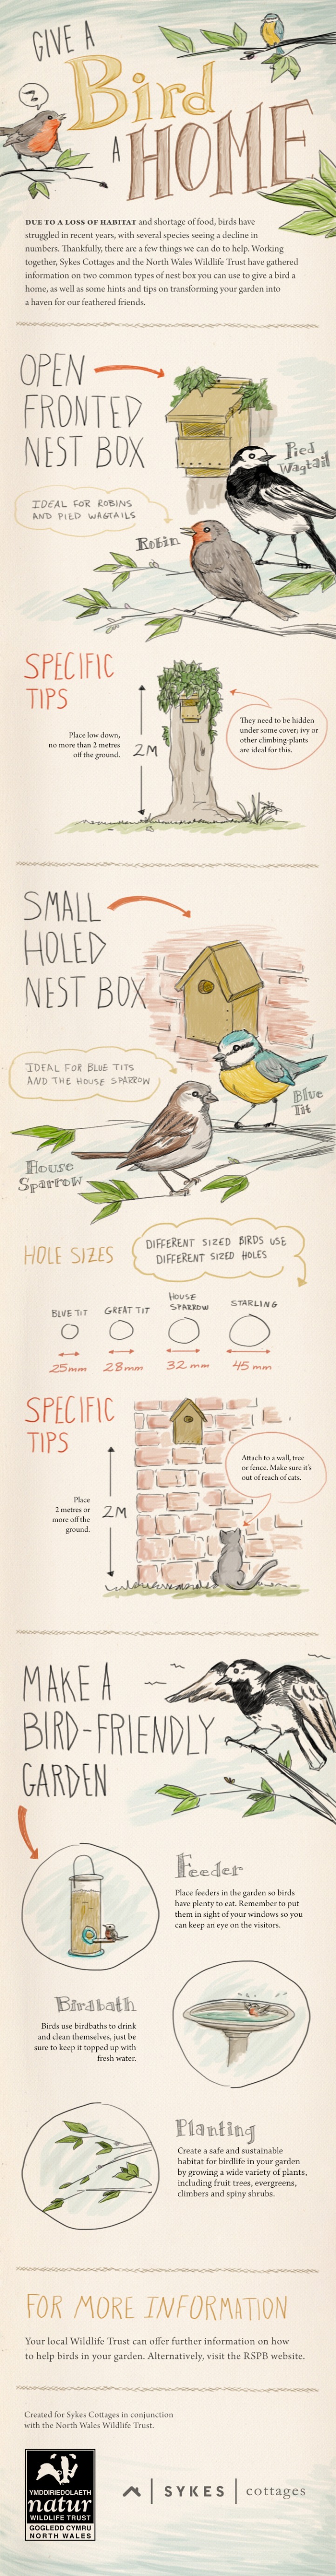 GIVE A
Bird
A HOME
DUE TO A LOSS OF HABITAT and shortage of food, birds have
struggled in recent years, with several species seeing a decline in
numbers. Thankfully, there are a few things we can do to help. Working
together, Sykes Cottages and the North Wales Wildlife Trust have gathered
information on two common types of nest box you can use to give a bird a
home, as well as some hints and tips on transforming your garden into
a haven for our feathered friends.
OPEN
FRONTED
NEST BOX
IDEAL FOR ROBINS
AND PIED WAGTAILS
Pied
Wagtail
Robin
SPECIFIC
TIPS
Place low down,
no more than 2 metres
off the ground.
2M
They need to be hidden
under some cover; ivy or
other climbing-plants
are ideal for this.
SMALL
HOLED
NEST BOX
IDEAL FOR BLUE TITS
AND THE HOUSE SPARROW
Blue
Tit
House
Sparrow
HOLE SIZES
DIFFERENT SIZED BIRDS USE
DIFFERENT SIZED HOLES
BLUE TIT
GREAT TIT
HOUSE
SPARROW
STARLING
25mm
28mm
32 mm
45 mm
SPECIFIC
TIPS
Place
2 metres or
more off the
ground.
2M
Attach to a wall, tree
or fence. Make sure it's
out of reach of cats.
MAKE A
BIRD-FRIENDLY
GARDEN
Feeder
Place feeders in the garden so birds
have plenty to eat. Remember to put
them in sight of your windows so you
can keep an eye on the visitors.
Birdbath
Birds use birdbaths to drink
and clean themselves, just be
sure to keep it topped up with
fresh water.
Planting
Create a safe and sustainable
habitat for birdlife in your garden
by growing a wide variety of plants,
including fruit trees, evergreens,
climbers and spiny shrubs.
FOR MORE INFORMATION
Your local Wildlife Trust can offer further information on how
to help birds in your garden. Alternatively, visit the RSPB website.
Created for Sykes Cottages in conjunction
with the North Wales Wildlife Trust.
YMDDIRIEDOLAETH
natur
WILDLIFE TRUST
GOGLEDD CYMRU
NORTH WALES
SYKES
cottages